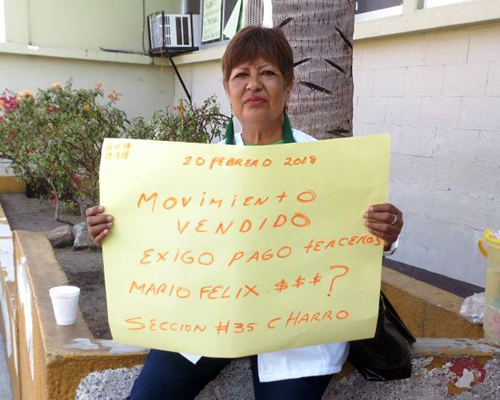 20 FEBRERO 2018
MOVIMIENTO
VENDIDO
EXIGO PAGO tERCEROS
MARIO FELIX. $$$?
SECCION #35 CHARRO